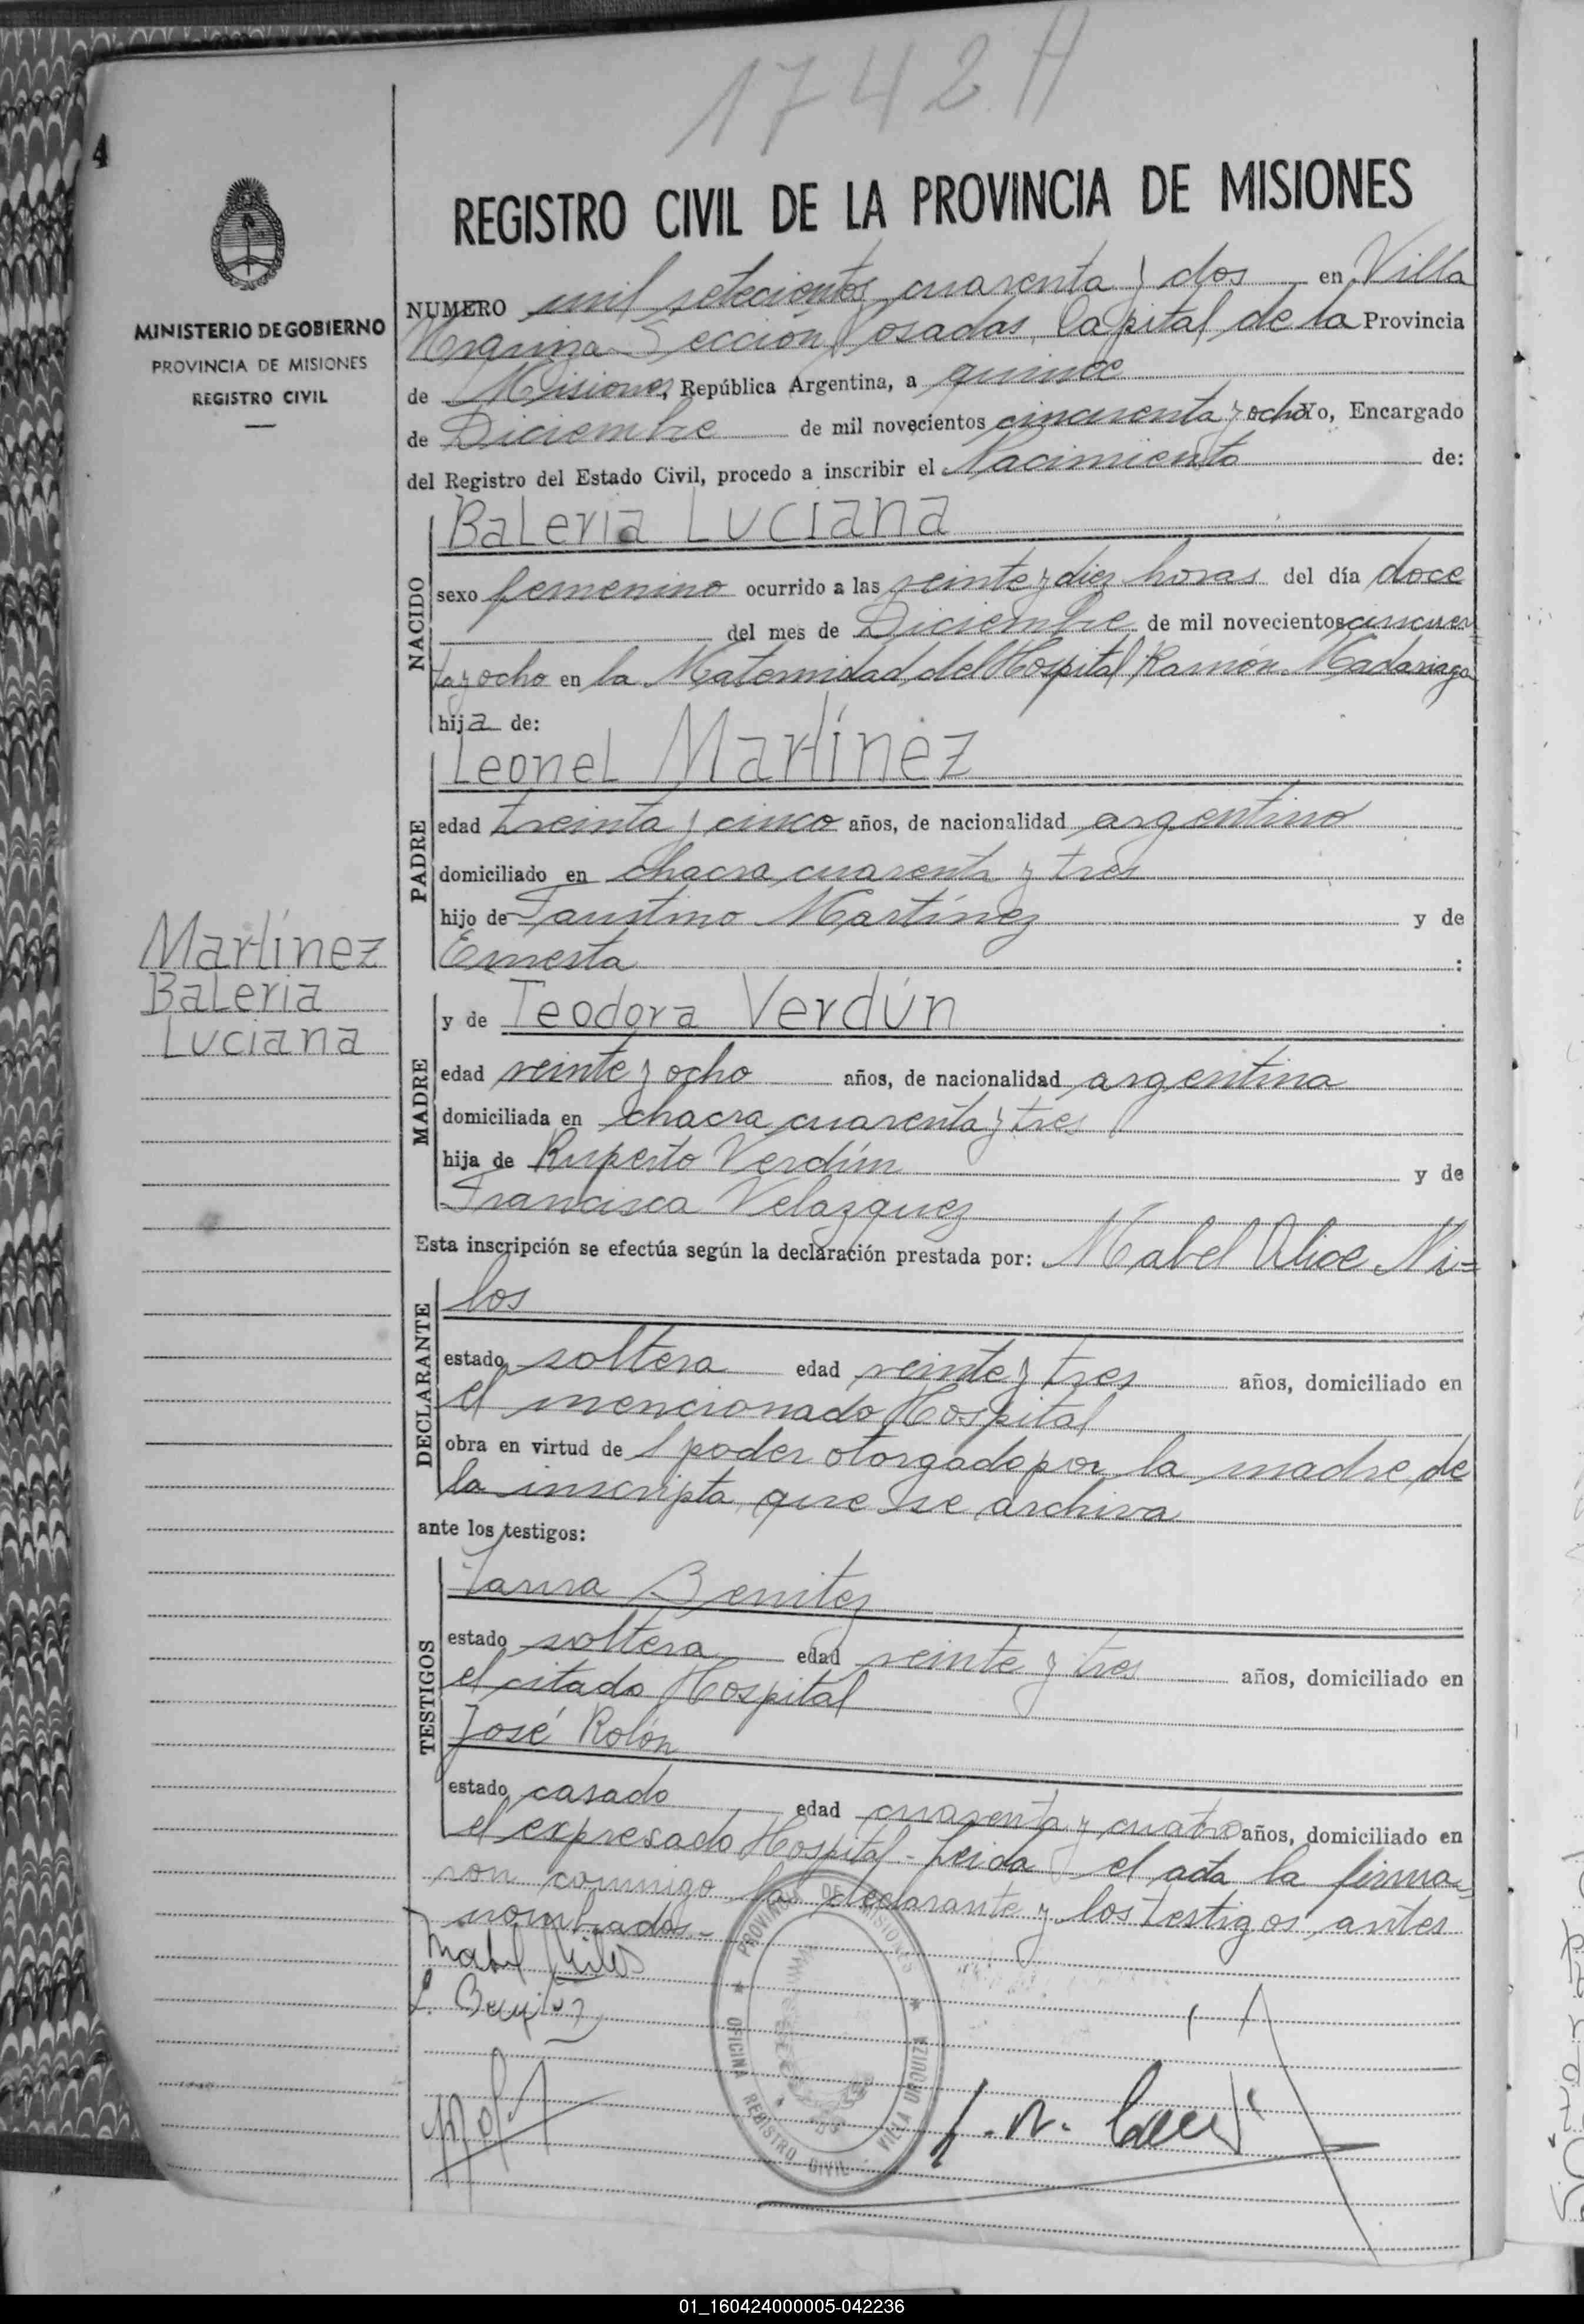 1742 H
4
REGISTRO CIVIL DE LA PROVINCIA DE MISIONES
MINISTERIO DE GOBIERNO
PROVINCIA DE MISIONES
REGISTRO CIVIL
NUMERO mil setecientos cuarenta y dos en Villa
Urquiza Sección Posadas, Capital de la Provincia
de Misiones República Argentina, a quince
de Diciembre de mil novecientos cincuenta y ocho Yo, Encargado
del Registro del Estado Civil, procedo a inscribir el Nacimiento de:
NACIDO
Baleria Luciana
sexo femenino ocurrido a las veinte y diez horas del día doce
del mes de Diciembre de mil novecientos cincuen=
ta y ocho en la Maternidad del Hospital Ramón Madariaga
hija de:
PADRE
Leonel Martínez
edad treinta y cinco años, de nacionalidad argentino
domiciliado en chacra cuarenta y tres
hijo de Faustino Martínez y de
Ernesta :
Martínez
Baleria
Luciana
MADRE
y de Teodora Verdún
edad veinte y ocho años, de nacionalidad argentina
domiciliada en chacra cuarenta y tres
hija de Ruperto Verdún y de
Francisca Velazquez
Esta inscripción se efectúa según la declaración prestada por: Mabel Alice Ni=
DECLARANTE
los
estado soltera edad veinte y tres años, domiciliado en
el mencionado Hospital
obra en virtud de 1 poder otorgado por la madre de
la inscripta que se archiva
ante los testigos:
TESTIGOS
Laura Benitez
estado soltera edad veinte y tres años, domiciliado en
el citado Hospital
José Rolón
estado casado edad cuarenta y cuatro años, domiciliado en
el expresado Hospital - Leida el acta la firma=
ron conmigo la declarante y los testigos antes
nombrados.-
Mabel Nilos
L. Benitez
PROVINCIA DE MISIONES
OFICINA REGISTRO CIVIL VILLA URQUIZA
01_160424000005-042236